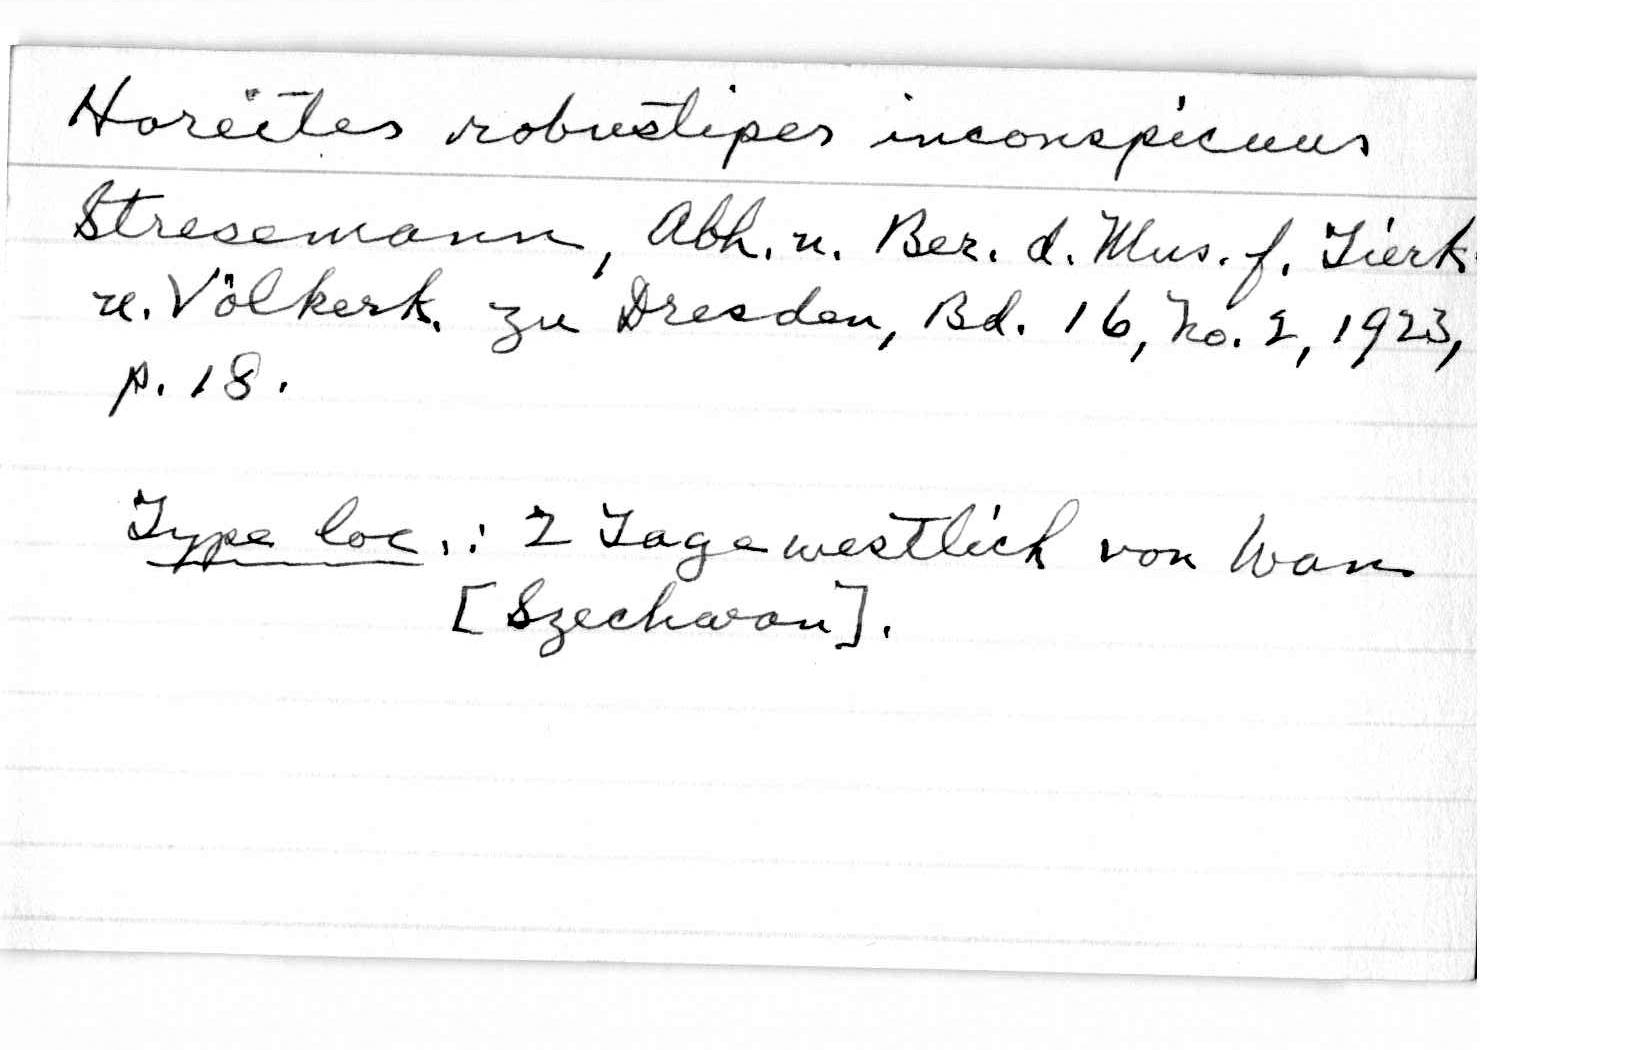 Horëites robustipes inconspicuus
Stresemann, Abh. u. Ber. d. Mus. f. Tierk.
u. Völkerk. zu Dresden, Bd. 16, No. 2, 1923,
p. 18.
Type loc.: 2 Tage westlich von Wan
[Szechwan].